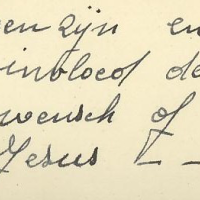 en zijn en
inbloed de
wensch of
Jesus